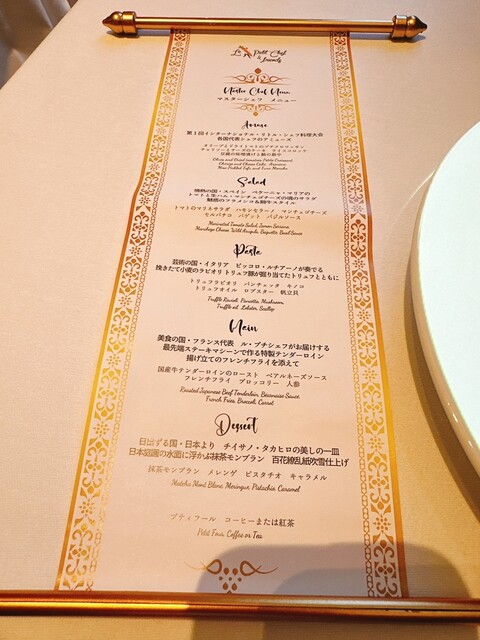 Le Petit Chef
& friends
Master Chef Menu
マスターシェフ メニュー
Amuse
第1回インターナショナル・リトル・シェフ料理大会
各国代表シェフのアミューズ
Salad
情熱の国・スペイン
トマトと生ハム・マンチェゴチーズの魂のサラダ
魅惑のフラメンコ&闘牛スタイル
トマトのマリネサラダ ハモンセラーノ マンチェゴチーズ
セルバチコ バゲット バジルソース
Marinated Tomato Salad, Jamon Serrano
Manchego Cheese, Wild Arugula, Baguette, Basil Sauce
Pasta
芸術の国・イタリア ピッコロ・ルチアーノが奏でる
挽きたて小麦のラビオリ トリュフ豚が掘り当てたトリュフとともに
トリュフラビオリ パンチェッタ キノコ
トリュフオイル ロブスター 帆立貝
Truffle Ravioli, Pancetta, Mushroom,
Truffle oil, Lobster, Scallop
Main
美食の国・フランス代表 ル・プチシェフがお届けする
最先端ステーキマシーンで作る特製テンダーロイン
揚げ立てのフレンチフライを添えて
国産牛テンダーロインのロースト ベアルネーズソース
フレンチフライ ブロッコリー 人参
Roasted Japanese Beef Tenderloin, Béarnaise Sauce
French Fries, Broccoli, Carrot
Dessert
日出ずる国・日本より チイサノ・タカヒロの美しの一皿
日本庭園の水面に浮かぶ抹茶モンブラン 百花繚乱紙吹雪仕上げ
抹茶モンブラン メレンゲ ピスタチオ キャラメル
Matcha Mont Blanc, Meringue, Pistachio, Caramel
プティフール コーヒーまたは紅茶
Petit Four, Coffee or Tea